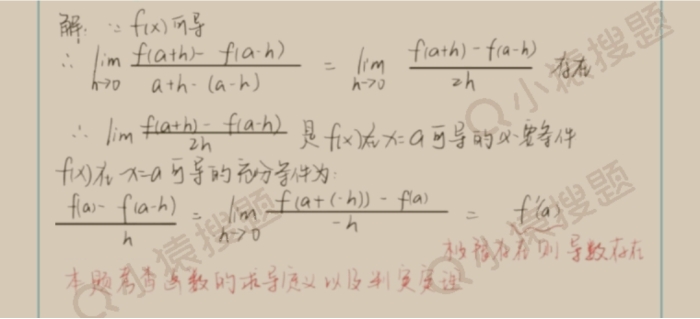 解: ∵ f(x)可导
∴ lim h→0 f(a+h)- f(a-h) / a+h-(a-h) = lim h→0 f(a+h)-f(a-h) / 2h 存在
∴ lim f(a+h)- f(a-h) / 2h 是f(x)在x=a可导的必要条件
f(x)在x=a可导的充分条件为:
f(a)- f(a-h) / h = lim h→0 f(a+(-h))-f(a) / -h = f'(a)
极值存在则导数存在
本题考查函数的求导定义以及判
小猿搜题
小猿搜题
小猿搜题